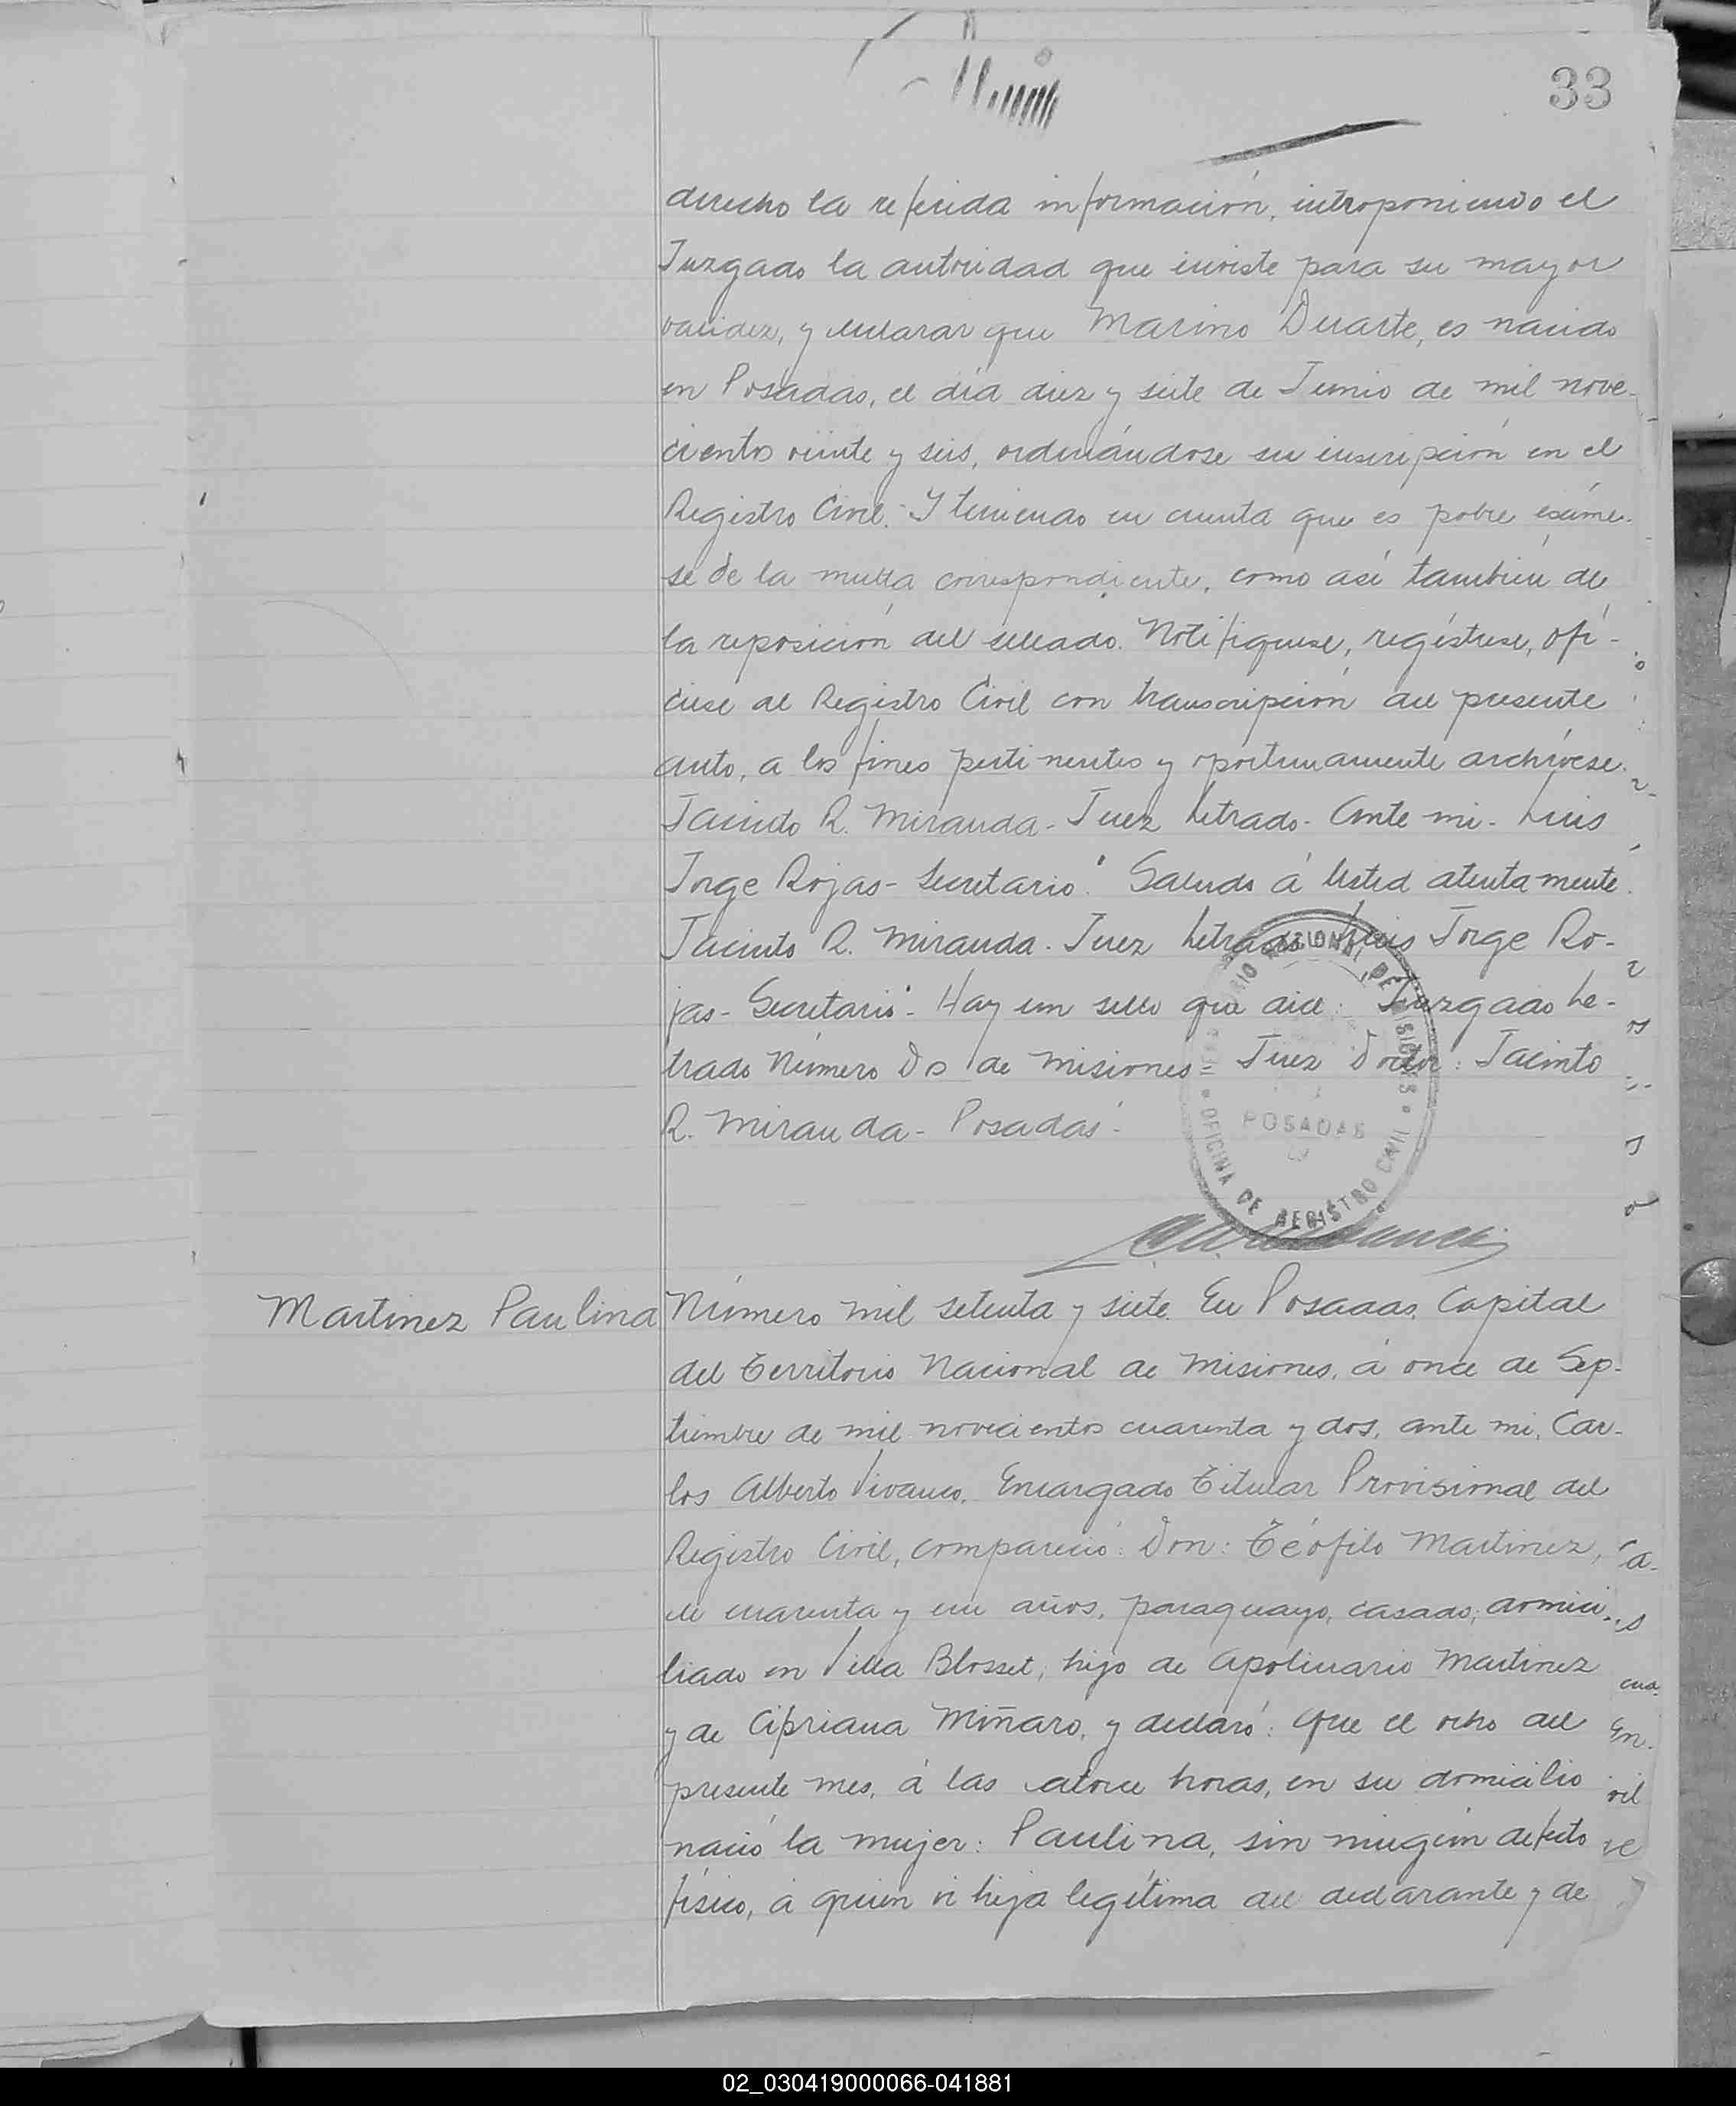 33
derecho la referida información, introponiendo el
Juzgado la autoridad que inviste para su mayor
validez, y declarar que Marino Duarte, es nacido
en Posadas, el día diez y siete de Junio de mil nove-
cientos veinte y seis, ordenándose su inscripción en el
Registro Civil. Y teniendo en cuenta que es pobre exíme-
se de la multa correspondiente, como así también de
la reposición del sellado. Notifíquese, regístrese, ofí-
ciese al Registro Civil con transcripción del presente
auto, a los fines pertinentes y oportunamente archívese.
Jacinto R. Miranda - Juez Letrado - Ante mi - Luis
Jorge Rojas - Secretario." Saludo á Usted atentamente.
Jacinto R. Miranda. Juez Letrado Luis Jorge Ro-
jas - Secretario". Hay un sello que dice: Juzgado Le-
trado Número Dos de Misiones = Juez Doctor: Jacinto
R. Miranda - Posadas.
NACIONAL DE MISIONES
POSADAS
OFICINA DE REGISTRO CIVIL
Martinez Paulina
Número mil setenta y siete. En Posadas, Capital
del Territorio Nacional de Misiones, á once de Sep-
tiembre de mil novecientos cuarenta y dos, ante mi, Car-
los Alberto Vivanco, Encargado Titular Provisional del
Registro Civil, compareció: Don: Teófilo Martinez,
de cuarenta y un años, paraguayo, casado, domici-
liado en Villa Blosset, hijo de Apolinario Martinez
y de Cipriana Miñaro, y declaró: Que el ocho del
presente mes, á las catorce horas, en su domicilio
nació la mujer: Paulina, sin ningún defecto
físico, á quien vi hija legítima del declarante y de
02_030419000066-041881